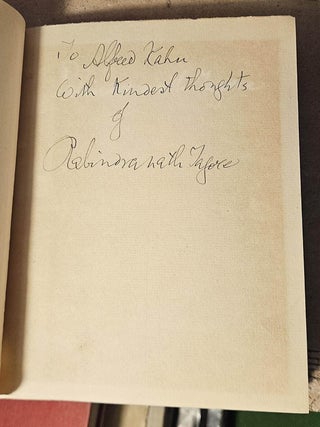 To Alfred Kahn
With Kindest thoughts
of
Rabindranath Tagore